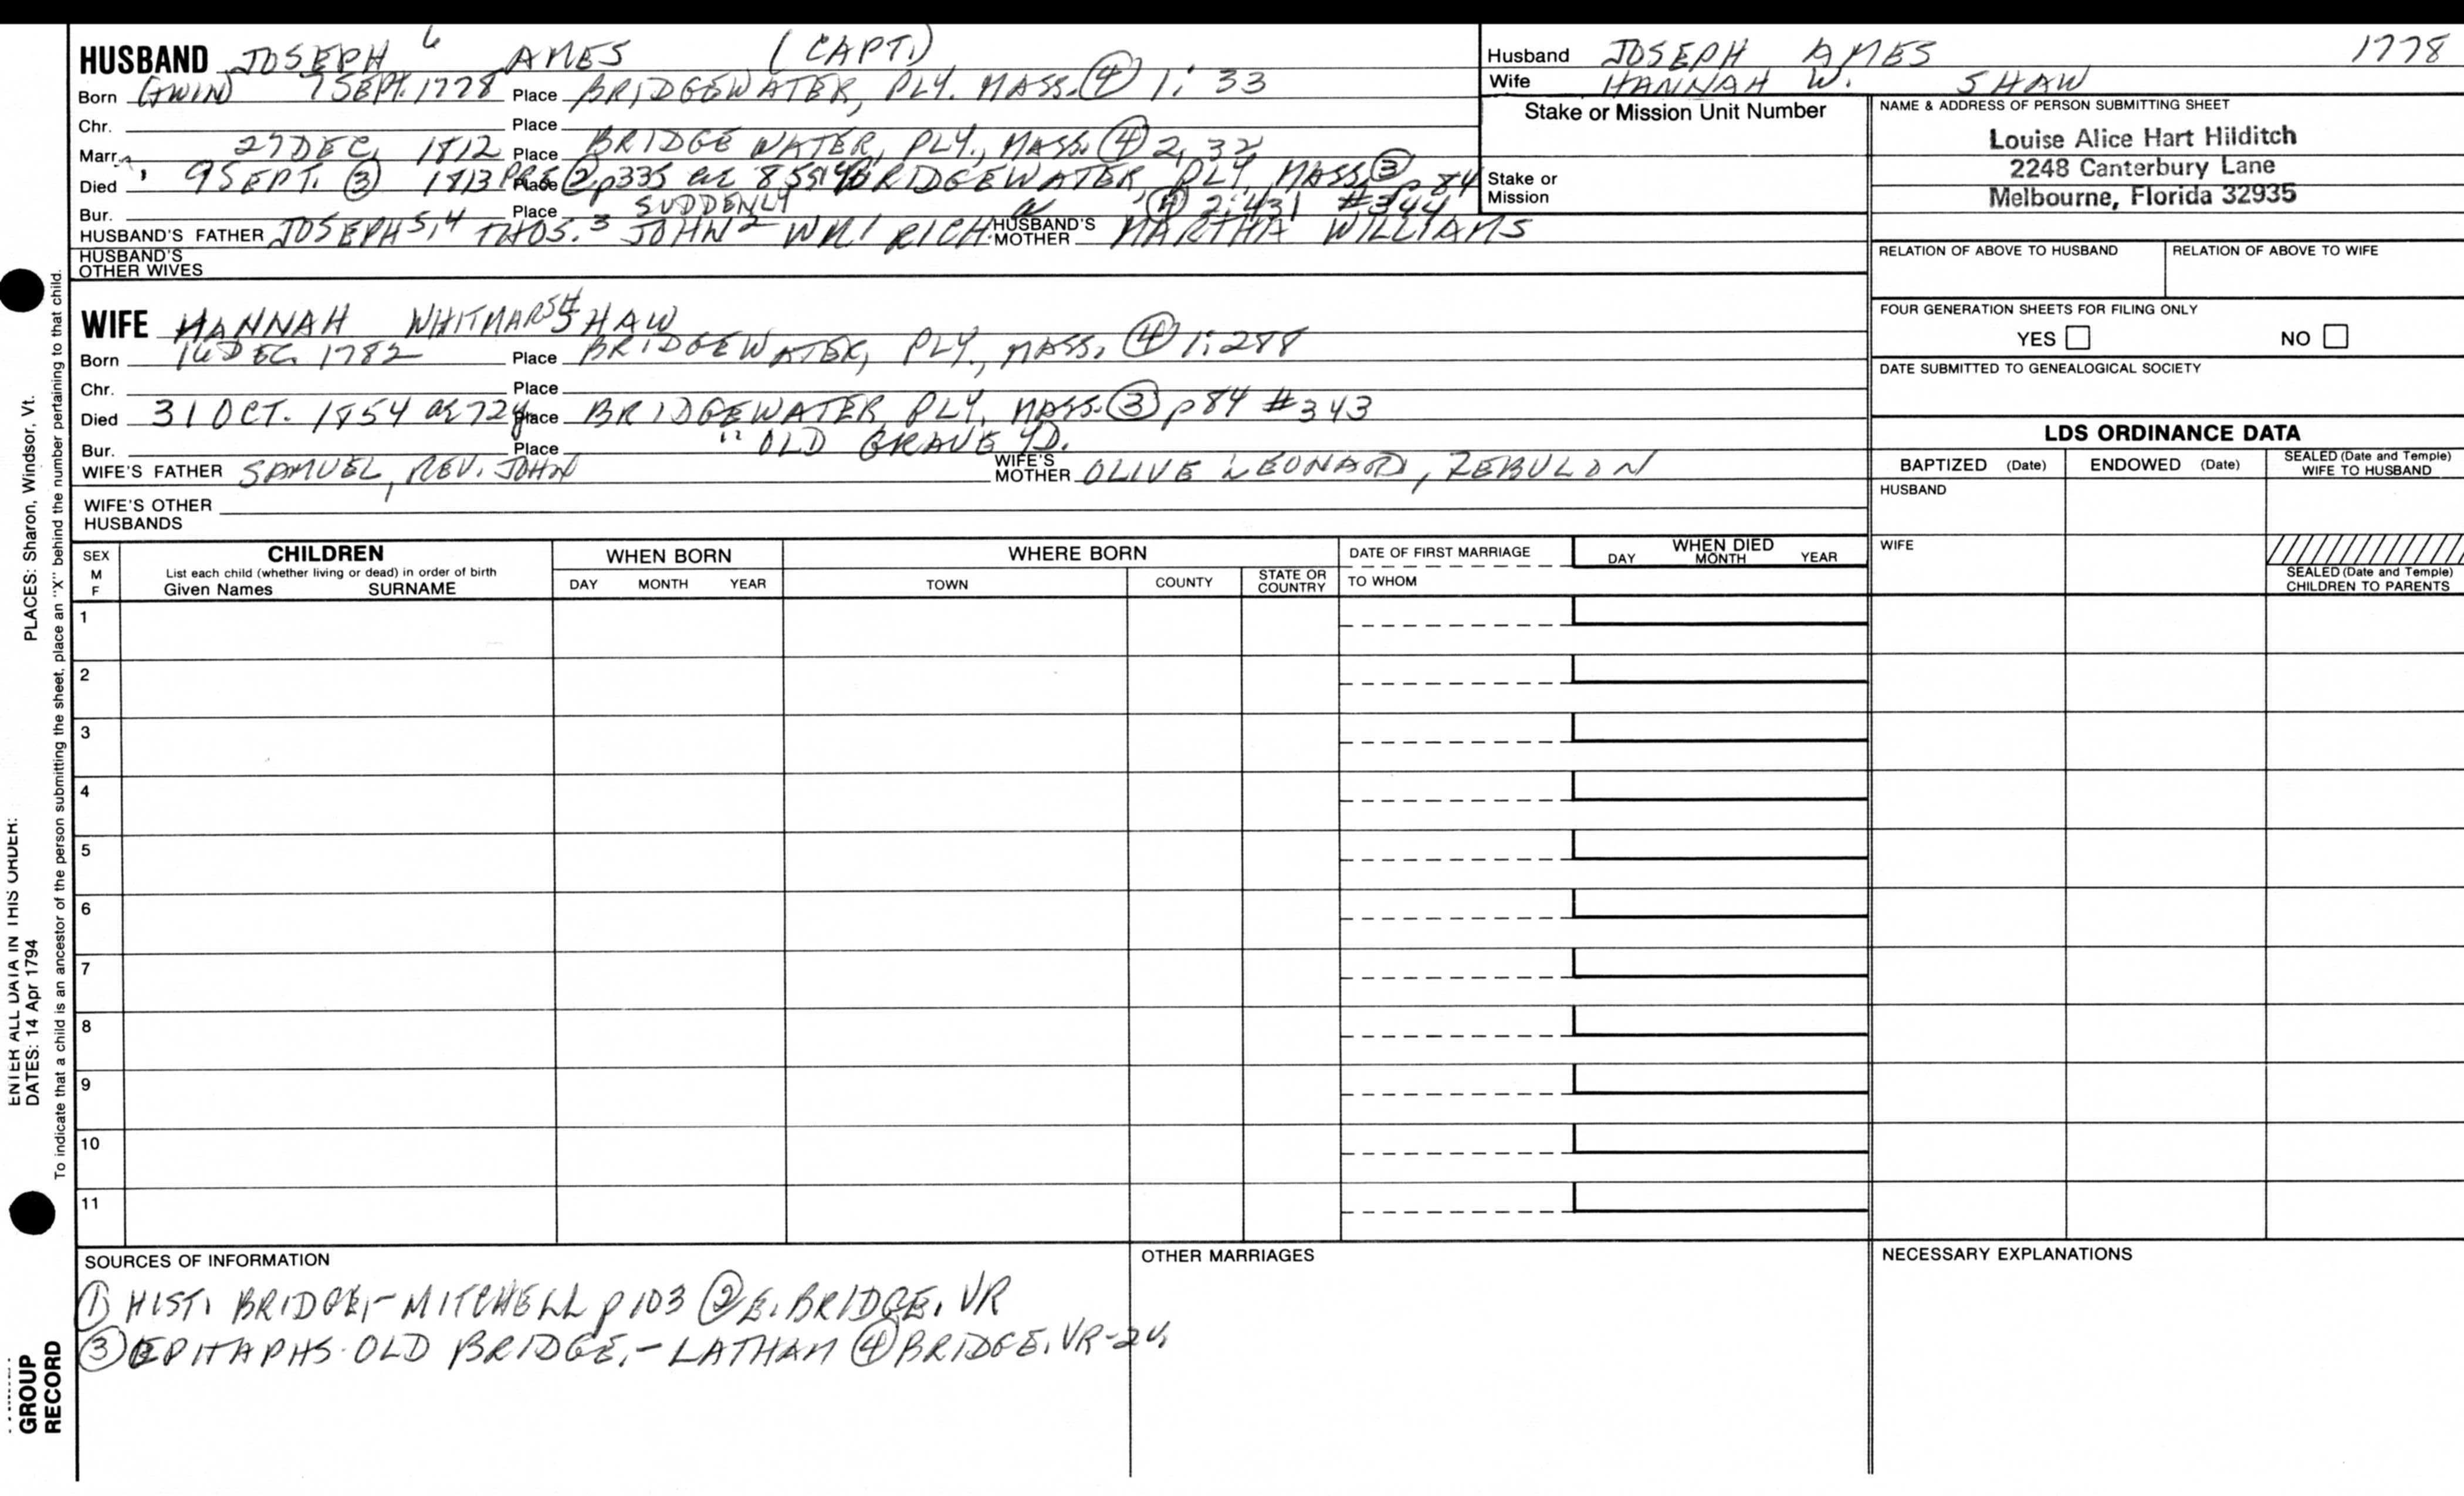 HUSBAND JOSEPH 6 AMES (CAPT.)
Born (TWIN) 7 SEPT. 1778 Place BRIDGEWATER, PLY. MASS. ④ 1:33
Chr. Place
Marr. 27 DEC. 1812 Place BRIDGEWATER, PLY., MASS. ④ 2,32
Died 9 SEPT. ③ 1813 Place BRIDGEWATER, PLY, MASS. ③ p 84
Bur. Place SUDDENLY ④ 2:431 #344
HUSBAND'S FATHER JOSEPH 5,4 THOS. 3 JOHN 2 WM 1 RICH. HUSBAND'S MOTHER MARTHA WILLIAMS
HUSBAND'S OTHER WIVES
WIFE HANNAH WHITMARSH SHAW
Born DEC. 1782 Place BRIDGEWATER, PLY., MASS. ④ 1:288
Chr. Place
Died 31 OCT. 1854 ae 72y Place BRIDGEWATER PLY, MASS. ③ p 84 #343
Bur. Place " OLD GRAVE YD.
WIFE'S FATHER SAMUEL, REV. JOHN WIFE'S MOTHER OLIVE LEONARD, ZEBULON
WIFE'S OTHER HUSBANDS
Husband JOSEPH AMES 1778
Wife HANNAH W. SHAW
Stake or Mission Unit Number
Stake or Mission
NAME & ADDRESS OF PERSON SUBMITTING SHEET
Louise Alice Hart Hilditch
2248 Canterbury Lane
Melbourne, Florida 32935
RELATION OF ABOVE TO HUSBAND RELATION OF ABOVE TO WIFE
FOUR GENERATION SHEETS FOR FILING ONLY
YES NO
DATE SUBMITTED TO GENEALOGICAL SOCIETY
LDS ORDINANCE DATA
BAPTIZED (Date) ENDOWED (Date) SEALED (Date and Temple) WIFE TO HUSBAND
HUSBAND
WIFE
SEALED (Date and Temple) CHILDREN TO PARENTS
SEX M F
CHILDREN
List each child (whether living or dead) in order of birth
Given Names SURNAME
WHEN BORN
DAY MONTH YEAR
WHERE BORN
TOWN COUNTY STATE OR COUNTRY
DATE OF FIRST MARRIAGE
TO WHOM
WHEN DIED
DAY MONTH YEAR
1
2
3
4
5
6
7
8
9
10
11
SOURCES OF INFORMATION
① HIST. BRIDGE.- MITCHELL p 103 ② E. BRIDGE. VR
③ EPITAPHS OLD BRIDGE.- LATHAM ④ BRIDGE. VR-2v.
OTHER MARRIAGES
NECESSARY EXPLANATIONS
ENTER ALL DATA IN THIS ORDER:
DATES: 14 Apr 1794 PLACES: Sharon, Windsor, Vt.
To indicate that a child is an ancestor of the person submitting the sheet, place an "X" behind the number pertaining to that child.
GROUP
RECORD